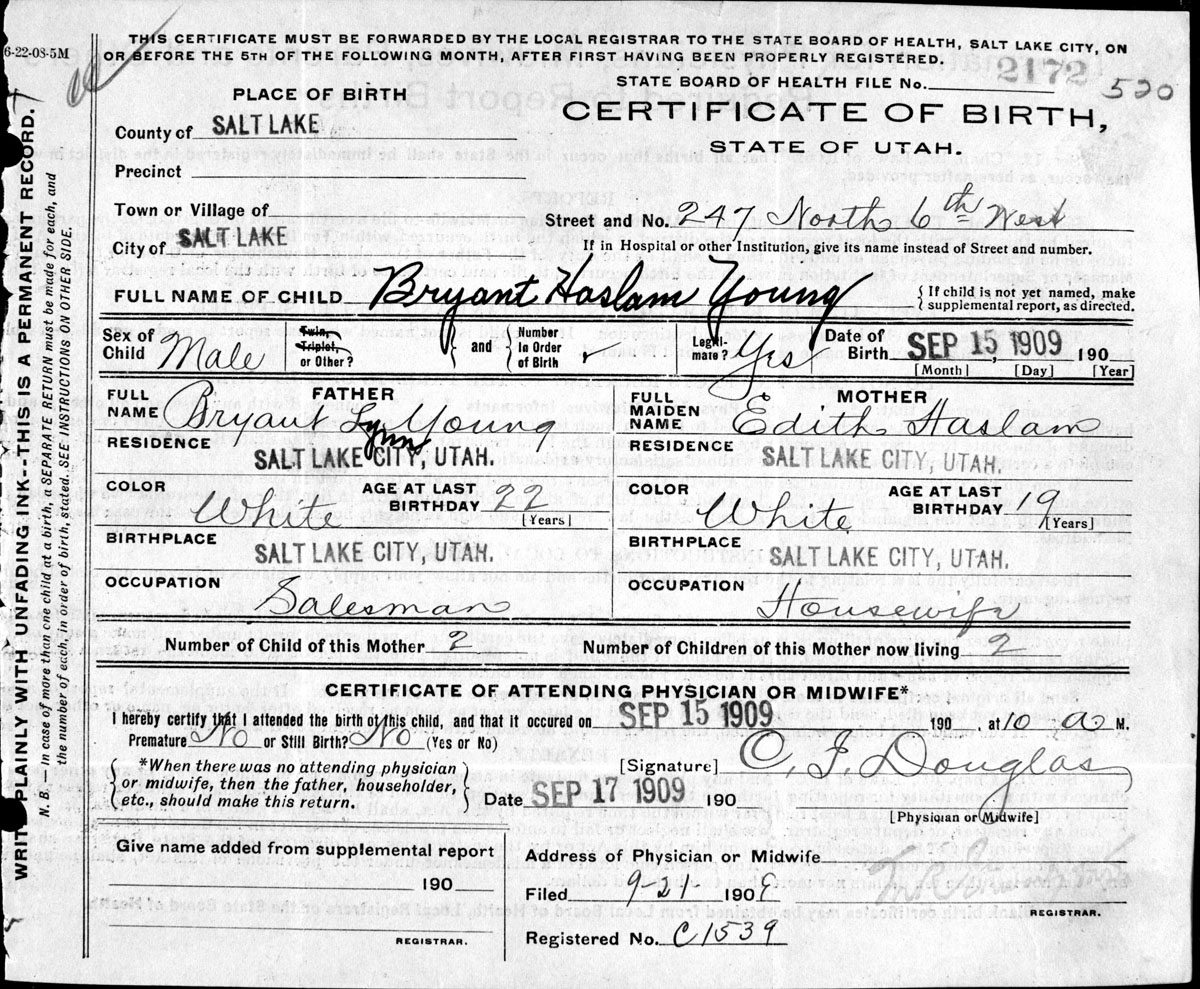 6-22-08-5M
THIS CERTIFICATE MUST BE FORWARDED BY THE LOCAL REGISTRAR TO THE STATE BOARD OF HEALTH, SALT LAKE CITY, ON
OR BEFORE THE 5TH OF THE FOLLOWING MONTH, AFTER FIRST HAVING BEEN PROPERLY REGISTERED.
STATE BOARD OF HEALTH FILE No. 2172 520
PLACE OF BIRTH
CERTIFICATE OF BIRTH,
STATE OF UTAH.
County of SALT LAKE
Precinct
Town or Village of
Street and No. 247 North 6th West
City of SALT LAKE
If in Hospital or other Institution, give its name instead of Street and number.
FULL NAME OF CHILD Bryant Haslam Young
{If child is not yet named, make
supplemental report, as directed.
Sex of Child Male
Twin, Triplet, or Other?
and
Number in Order of Birth
Legitimate? Yes
Date of Birth SEP 15, 1909 190
[Month] [Day] [Year]
FATHER
FULL NAME Bryant Lynn Young
RESIDENCE
SALT LAKE CITY, UTAH.
COLOR White
AGE AT LAST BIRTHDAY 22
[Years]
BIRTHPLACE
SALT LAKE CITY, UTAH.
OCCUPATION
Salesman
MOTHER
FULL MAIDEN NAME Edith Haslam
RESIDENCE
SALT LAKE CITY, UTAH.
COLOR White
AGE AT LAST BIRTHDAY 19
[Years]
BIRTHPLACE
SALT LAKE CITY, UTAH.
OCCUPATION
Housewife
Number of Child of this Mother 2
Number of Children of this Mother now living 2
CERTIFICATE OF ATTENDING PHYSICIAN OR MIDWIFE*
I hereby certify that I attended the birth of this child, and that it occured on SEP 15 1909 190 , at 10 a M.
Premature No or Still Birth? No (Yes or No)
{*When there was no attending physician
or midwife, then the father, householder,
etc., should make this return.}
[Signature] C. F. Douglas
Date SEP 17 1909 190
[Physician or Midwife]
Give name added from supplemental report
190
REGISTRAR.
Address of Physician or Midwife
Filed 9-21- 1909
REGISTRAR.
Registered No. C1539
WRITE PLAINLY WITH UNFADING INK--THIS IS A PERMANENT RECORD.
N. B.— In case of more than one child at a birth, a SEPARATE RETURN must be made for each, and
the number of each, in order of birth, stated. SEE INSTRUCTIONS ON OTHER SIDE.